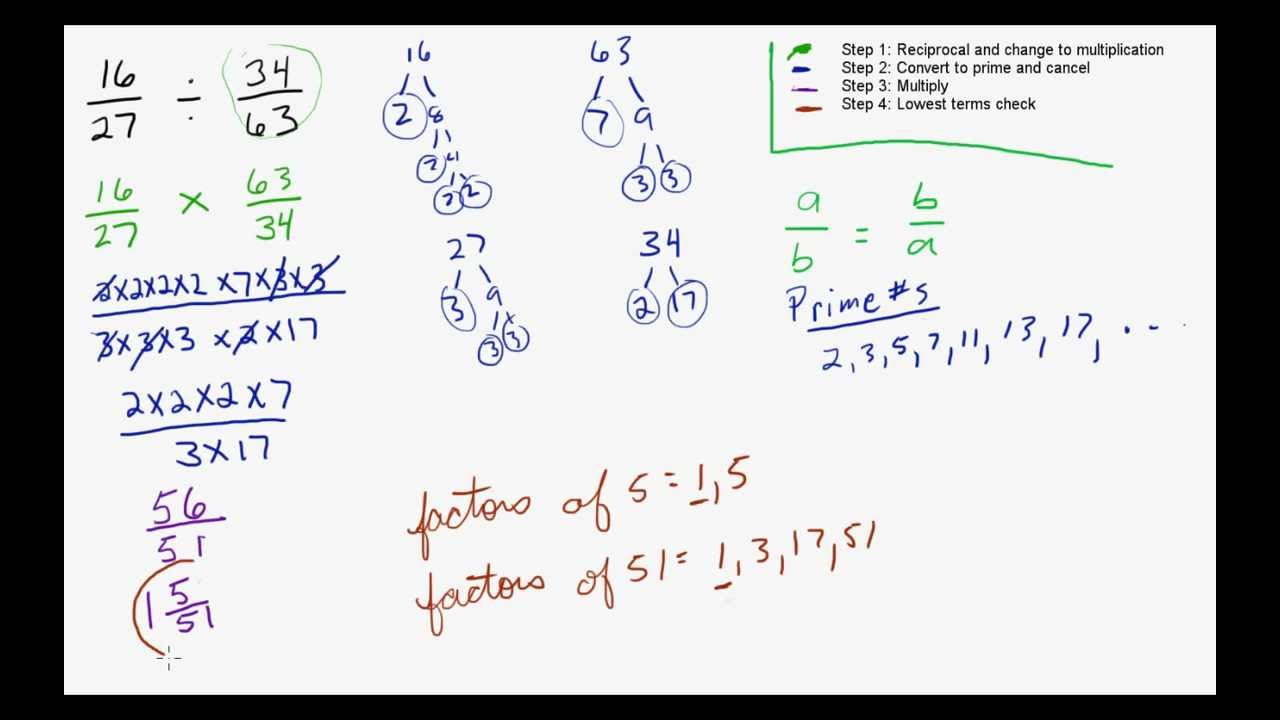 16/27 ÷ 34/63
16/27 × 63/34
2×2×2×2 ×7×3×3
3×3×3 ×2×17
2×2×2×7
3×17
56/51
1 5/51
16
2 8
2 4
2 2
63
7 9
3 3
27
3 9
3 3
34
2 17
Step 1: Reciprocal and change to multiplication
Step 2: Convert to prime and cancel
Step 3: Multiply
Step 4: Lowest terms check
a/b = b/a
Prime #s
2, 3, 5, 7, 11, 13, 17, ...
factors of 5 = 1, 5
factors of 51 = 1, 3, 17, 51